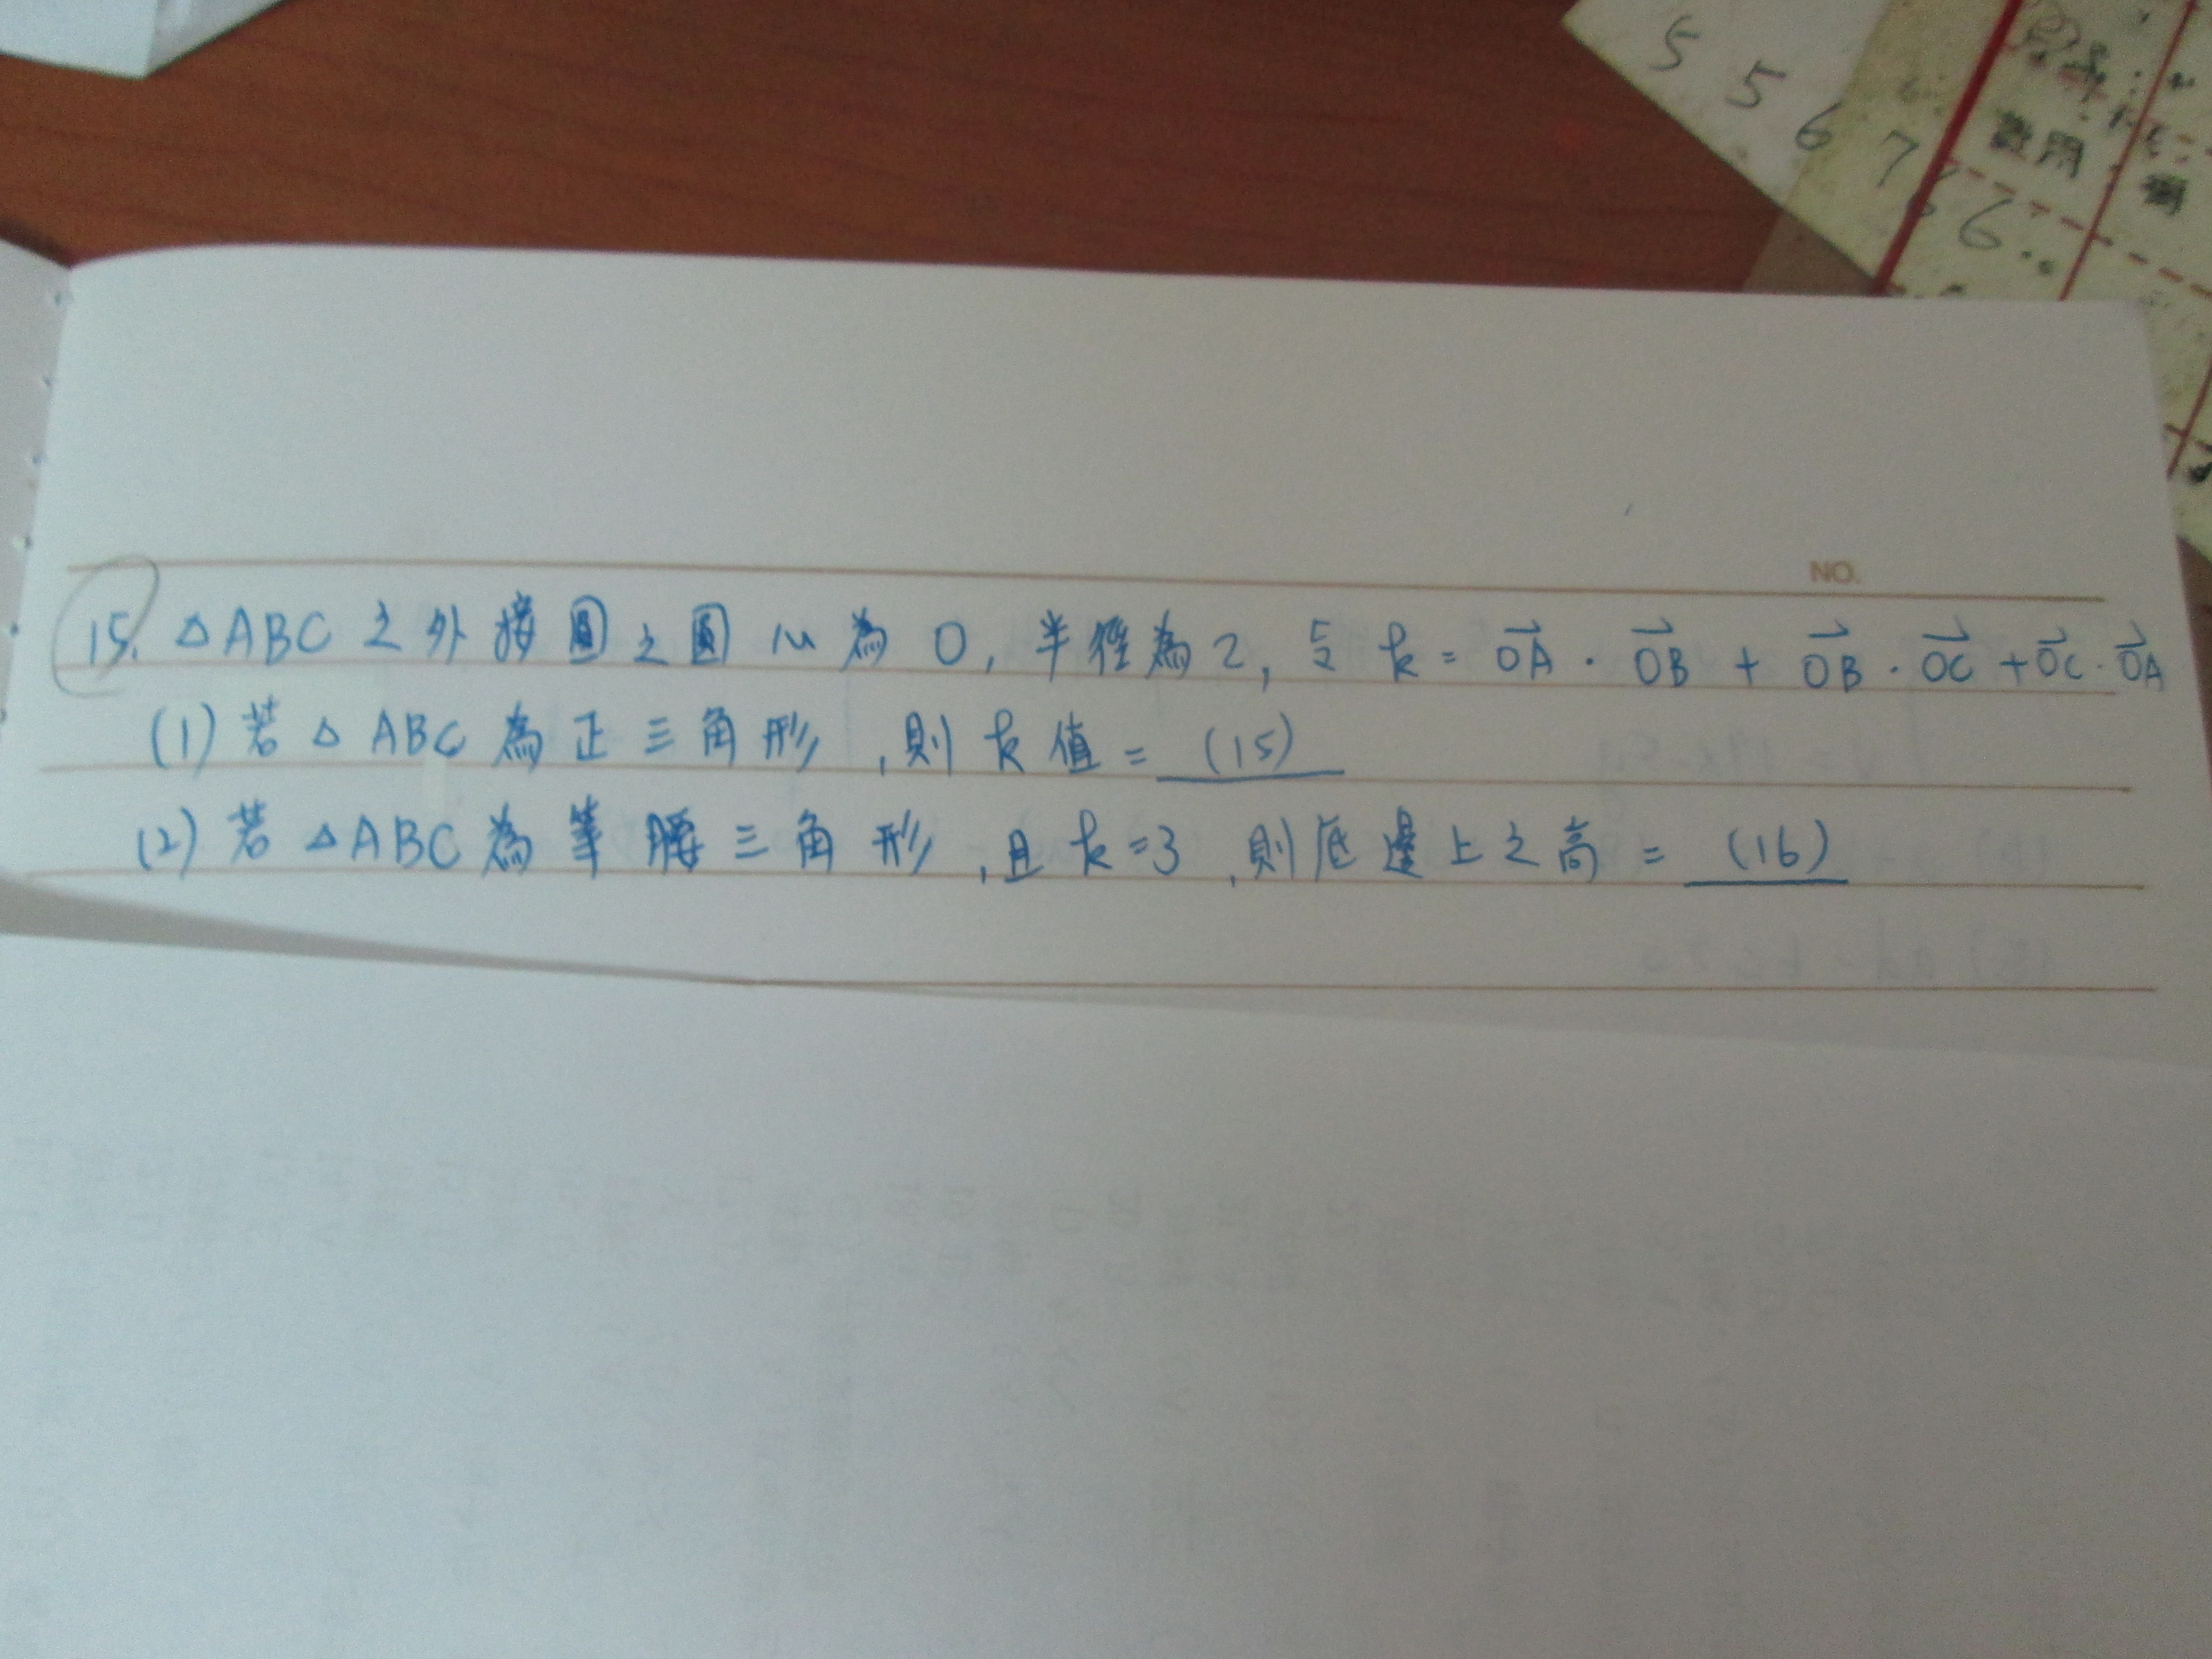 5 5 6 7
6
費用
NO.
15. △ABC 之外接圓之圓心為 O, 半徑為 2, 令 k = OA · OB + OB · OC + OC · OA
(1) 若 △ABC 為正三角形, 則 k 值 = (15)
(2) 若 △ABC 為等腰三角形, 且 k = 3, 則底邊上之高 = (16)